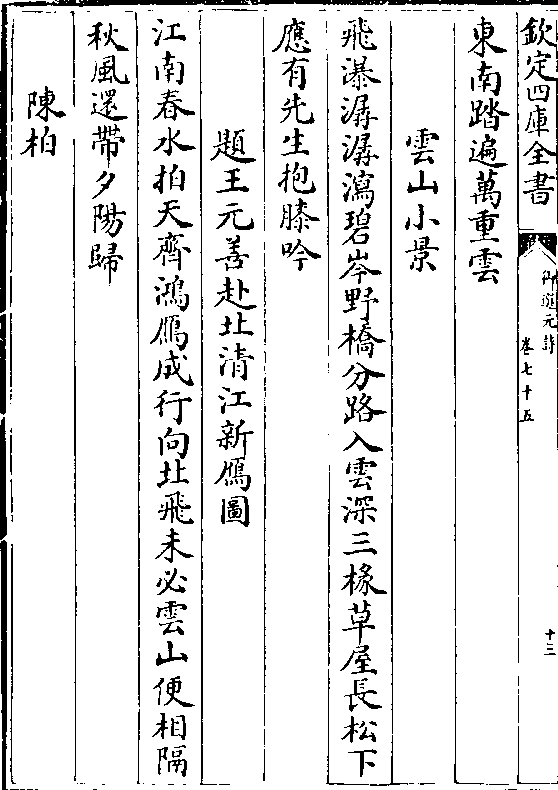 欽定四庫全書
御選元詩
卷七十五
十三
東南踏遍萬重雲
雲山小景
飛瀑潺潺瀉碧岑野橋分路入雲深三椽草屋長松下
應有先生抱膝吟
題王元善赴北清江新鴈圖
江南春水拍天齊鴻鴈成行向北飛未必雲山便相隔
秋風還帶夕陽歸
陳柏